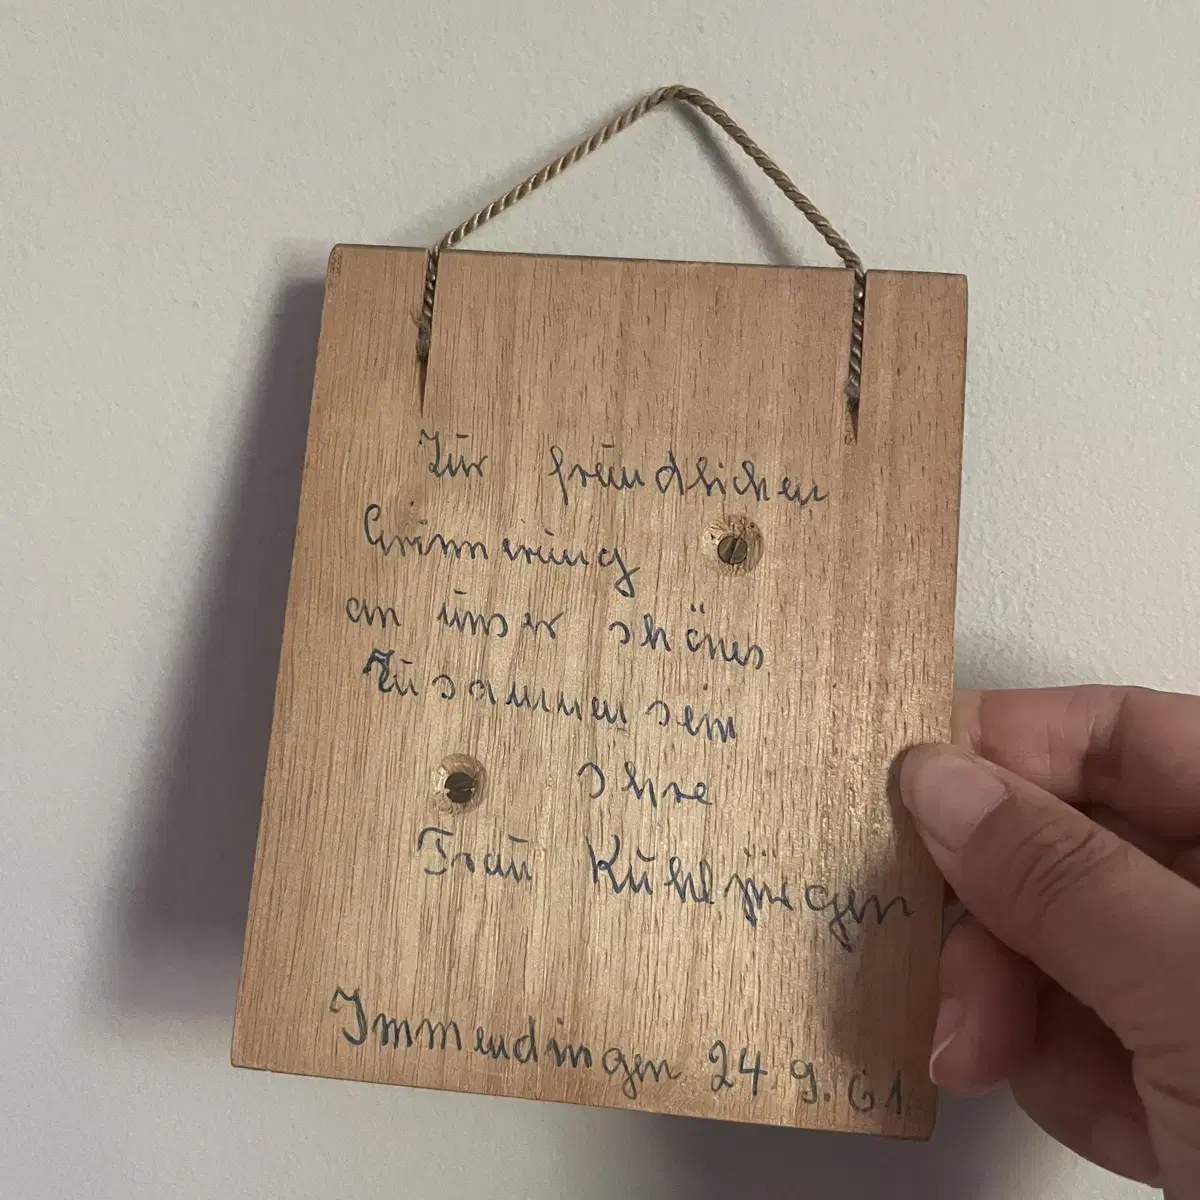 Zur freundlichen
Erinnerung
an unser schönes
Zusammensein
Ihre
Frau Kuhljürgen
Immendingen 24.9.61.